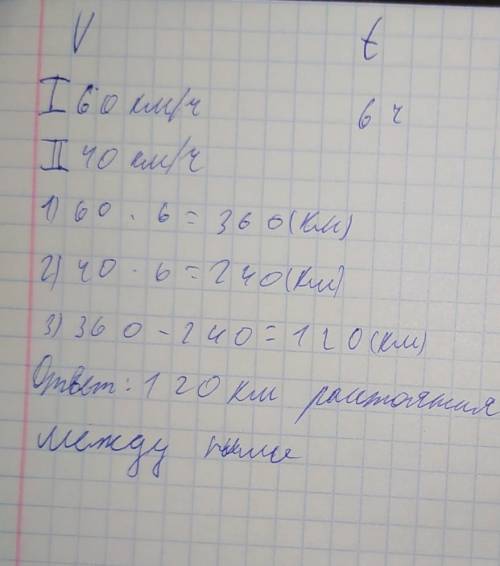 V t
I 60 км/ч 6 ч
II 40 км/ч
1) 60 · 6 = 360 (км)
2) 40 · 6 = 240 (км)
3) 360 - 240 = 120 (км)
Ответ: 120 км расстояния
между ними